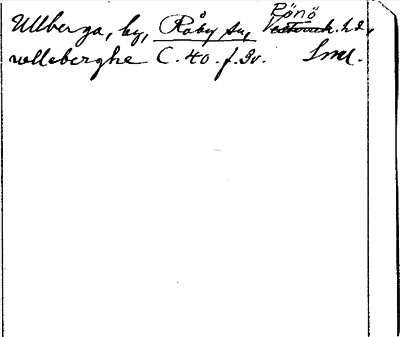 Rönö
Ullberga, by, Råby sn, Vestermk. hd,
vlleberghe C. 40. f. 3v. Sml.